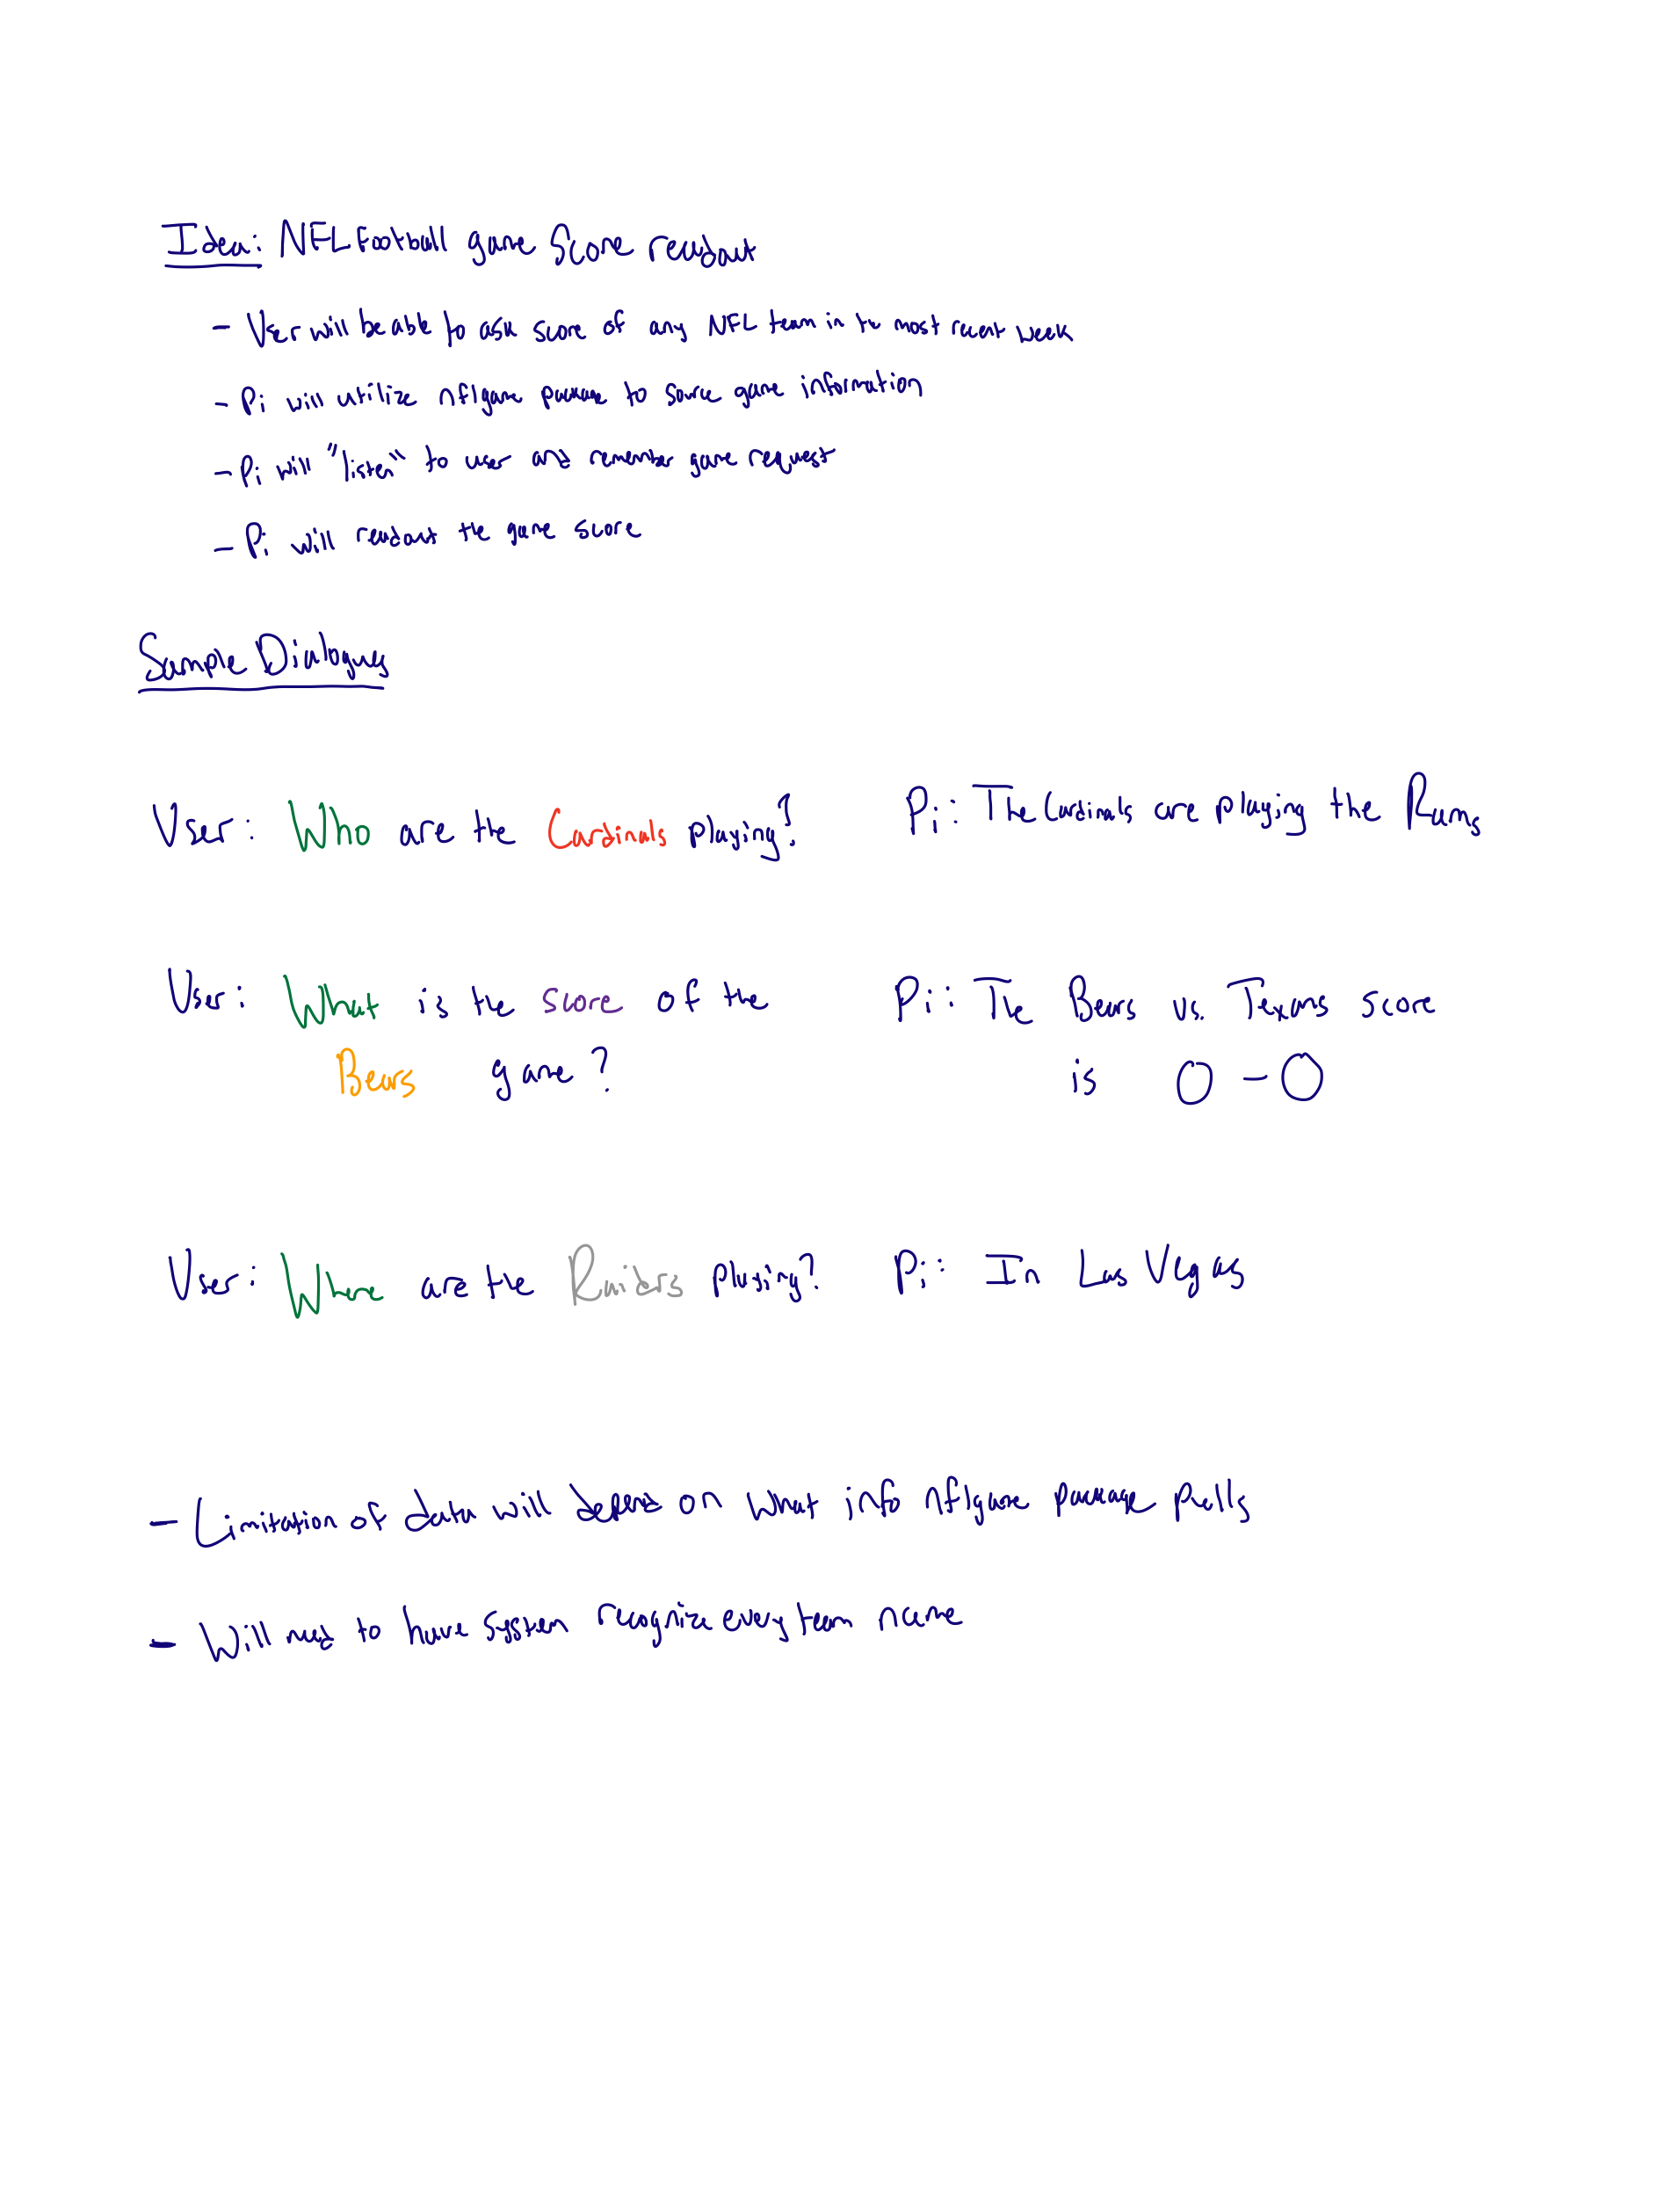 Idea: NFL Football game Score readout
- User will be able to ask score of any NFL team in the most recent week
- Pi will utilize nflgame package to source game information
- Pi will "listen" to user and remember game request
- Pi will readout the game score
Sample Dialogues
User: Who are the Cardinals playing? Pi: The Cardinals are playing the Rams
User: What is the score of the Pi: The Bears vs. Texans score
Bears game? is 0 - 0
User: Where are the Raiders playing? Pi: In Las Vegas
- Limitation of data will depend on what info nflgame package pulls
- Will need to have system recognize every team name